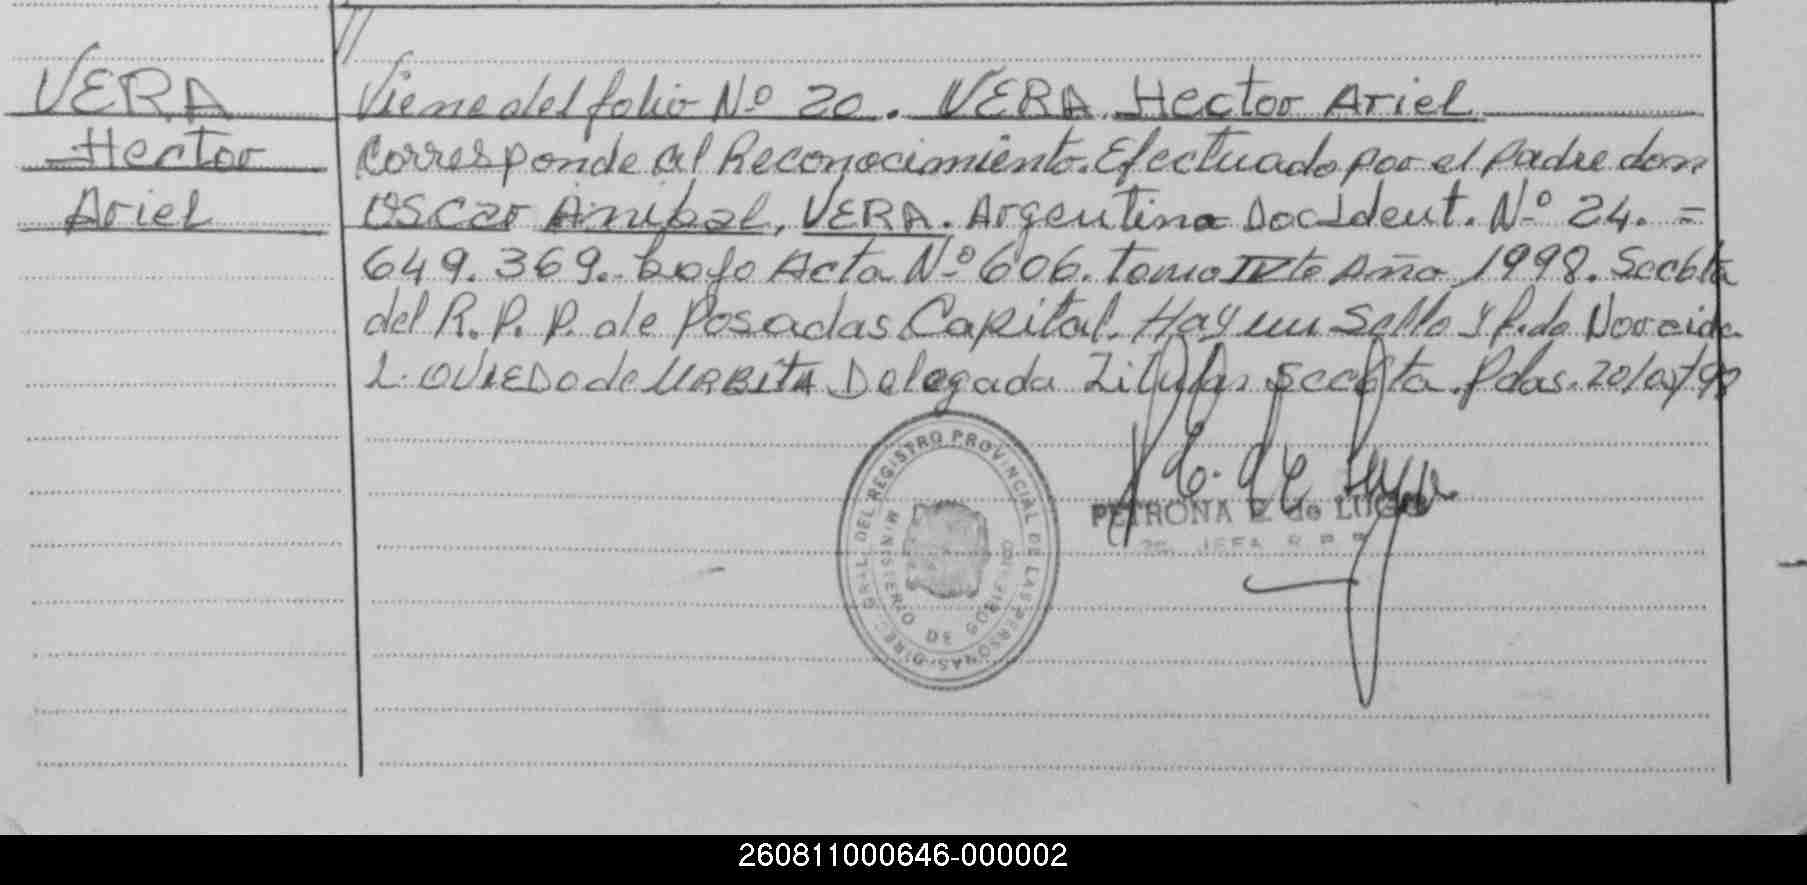 VERA
Hector
Ariel
Viene del folio Nº 20. VERA Hector Ariel
Corresponde al Reconocimiento. Efectuado por el padre don
OSCAR Anibal, VERA. Argentina Doc Ident. Nº 24. =
649.369. bajo Acta Nº 606. tomo IV to Año 1998. Secc 6ta
del R.P.P. de Posadas Capital. Hay un Sello y f.do
L. OVIEDO de URBITA Delegada Titular Secc 6ta. Pdas. 20/
DIREC. GRAL. DEL REGISTRO PROVINCIAL DE LAS PERSONAS
MINISTERIO DE GOBIERNO
PETRONA E. de LUGO
JEFA R.P.P.
260811000646-000002